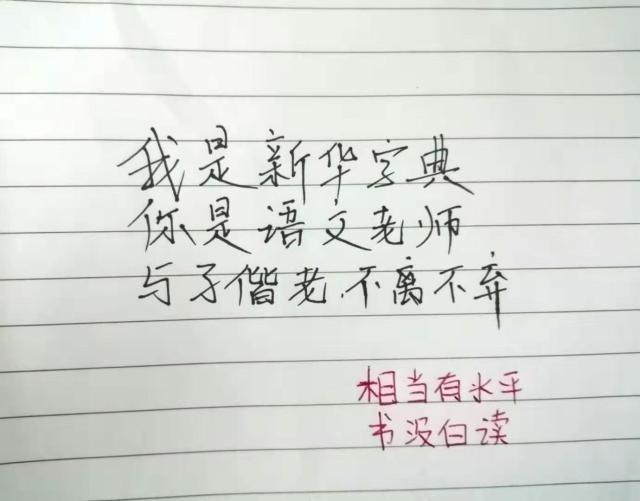 我是新华字典
你是语文老师
与子偕老.不离不弃
相当有水平
书没白读